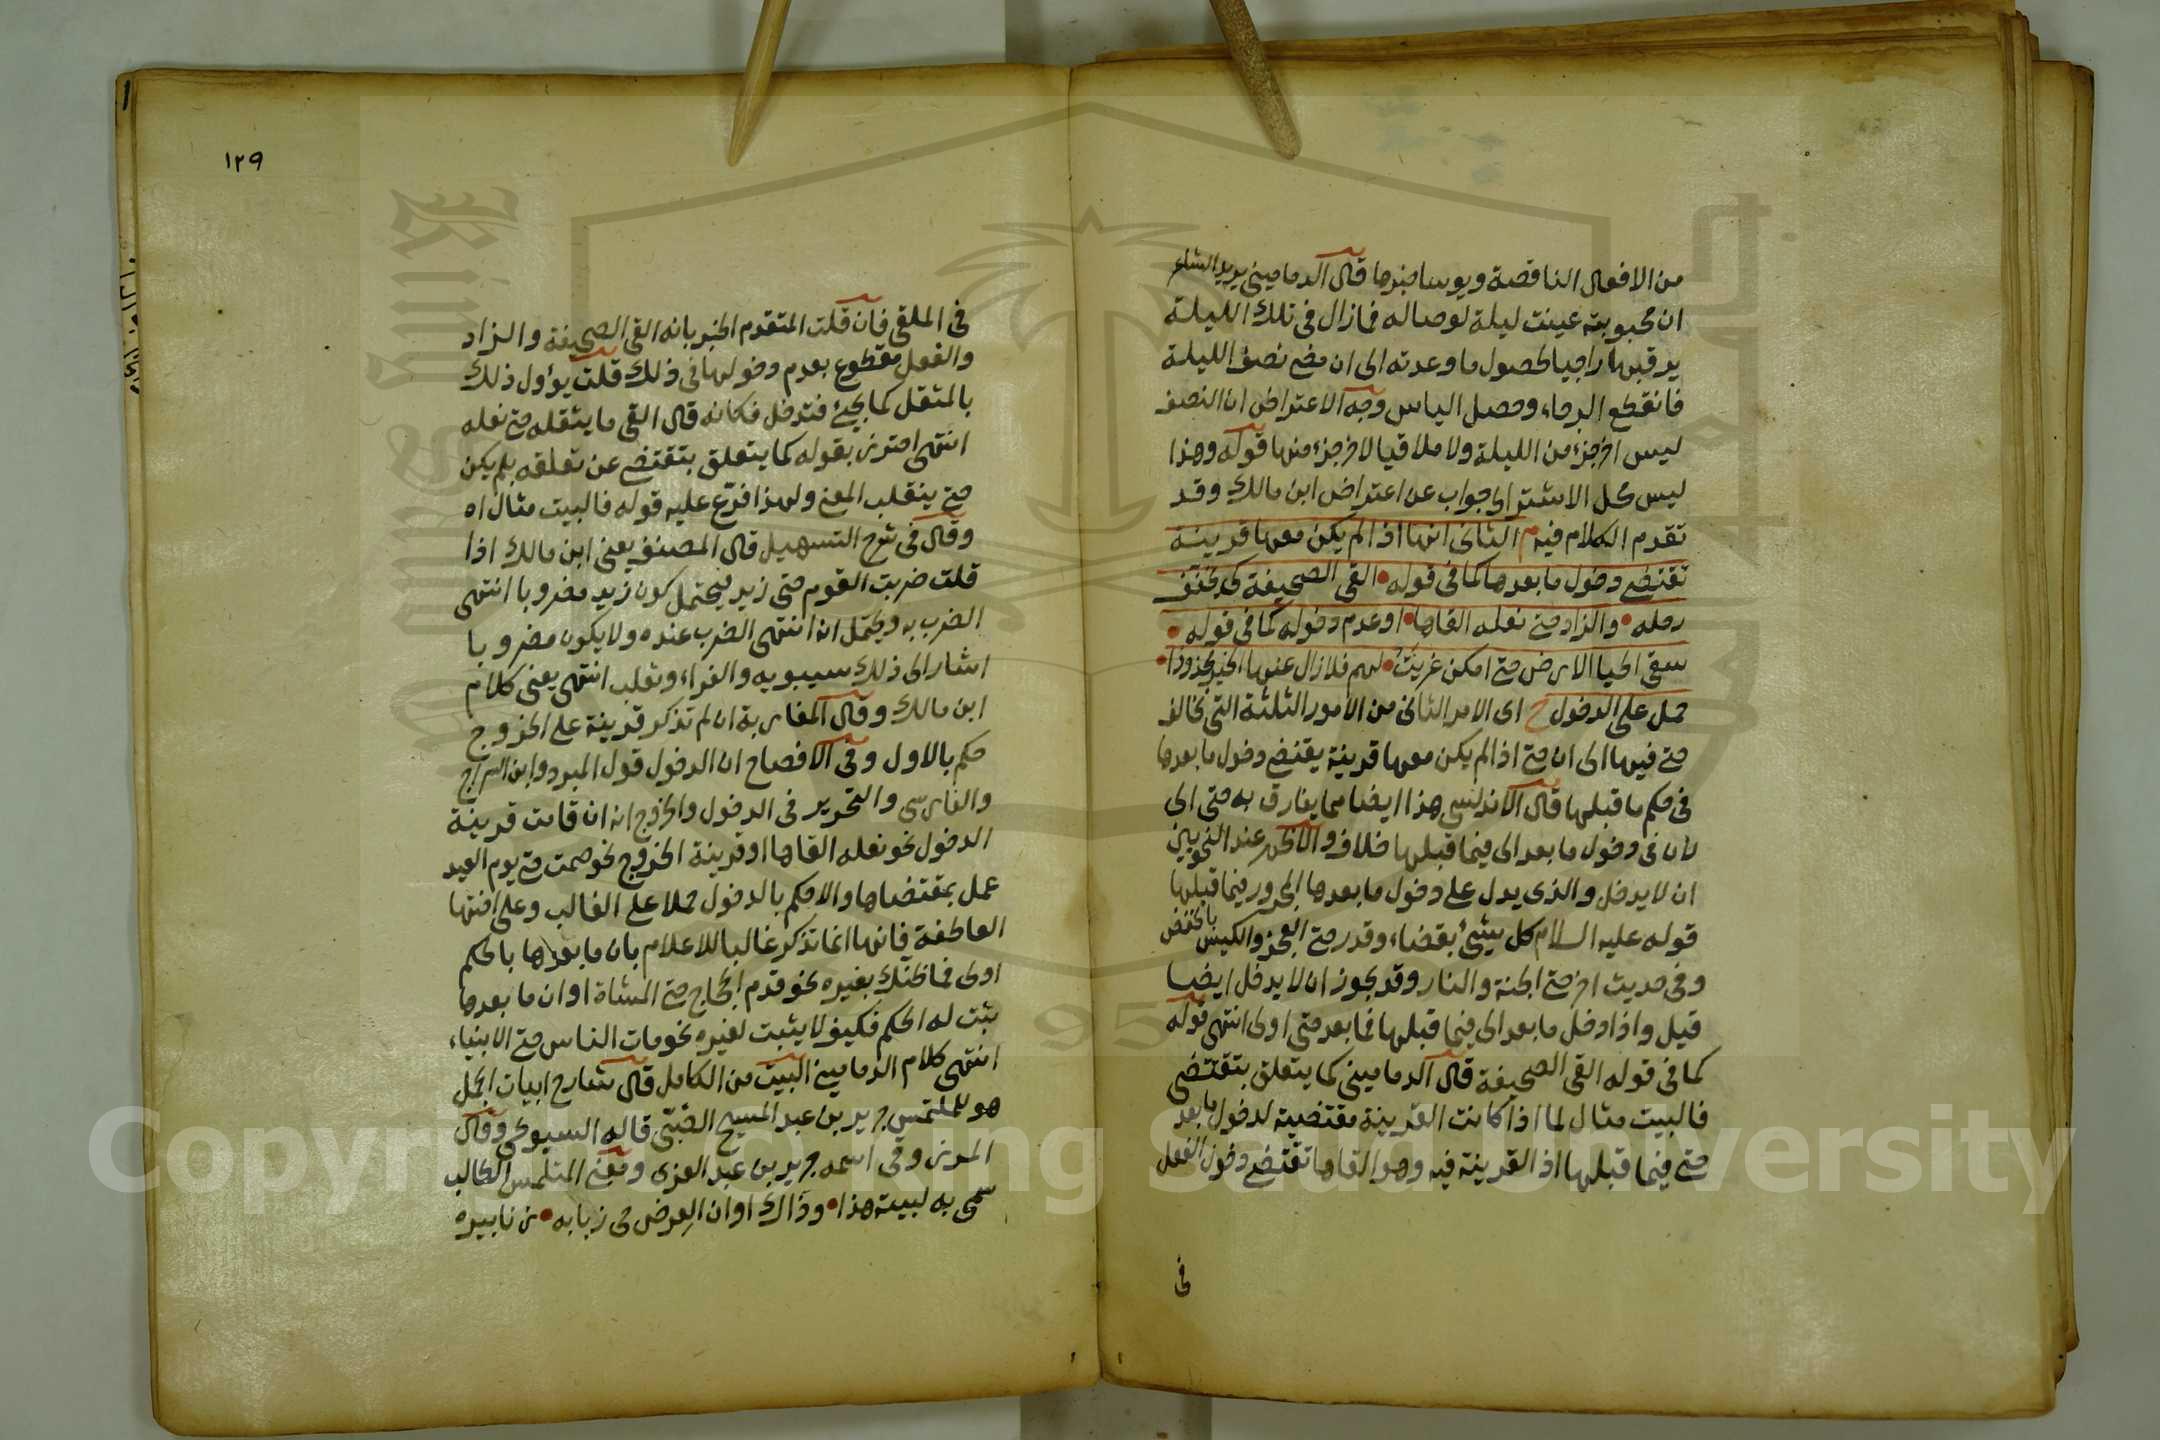 من الافعال الناقصة ويوسا خبرها قال الدماميني يريد الشاعر
ان محبوبته عينت ليلة لوصاله فما زال في تلك الليلة
يرقبها راجيا لحصول ما وعدته الى ان مضى نصف الليلة
فانقطع الرجاء وحصل الياس وجه الاعتراض ان النصف
ليس اخر جزء من الليلة ولا ملاقيا لاخر جزء منها قوله وهذا
ليس محل الاشتراك جواب عن اعتراض ابن مالك وقد
تقدم الكلام فيه م الثاني انها اذا لم يكن معها قرينة
تقتضي دخول ما بعدها كما في قوله القى الصحيفة كي يخفف
رحله والزاد حتى نعله القاها او عدم دخوله كما في قوله
سقى الحيا الارض حتى امكن عزيت لهم فلا زال عنها الخير مجذوذا
حمل على الدخول ح اى الامر الثاني من الامور الثلثة التي تخالف
حتى فيها الى ان حتى اذا لم يكن معها قرينة يقتضي دخول ما بعدها
في حكم ما قبلها قال الاندلسي هذا ايضا مما يفارق به حتى الى
لان في دخول ما بعد الى فيما قبلها خلاف والاظهر عند النحويين
ان لا يدخل والذي يدل على دخول ما بعدها المجرور فيما قبلها
قوله عليه السلام كل شيء بقضاء وقدر حتى العجز والكيس بالخفض
وفي حديث اخر حتى الجنة والنار وقد يجوز ان لا يدخل ايضا
قيل واذا دخل ما بعد الى فيما قبلها فما بعد حتى اولى انتهى قوله
كما في قوله القى الصحيفة قال الدماميني كما يتعلق بتقتضي
فالبيت مثال لما اذا كانت القرينة مقتضية لدخول ما بعد
حتى فيما قبلها اذ القرينة فيه وهو القاها تقتضي دخول الفعل
في
١٢٩
في الملقى فان قلت المتقدم الخبر بانه القى الصحيفة والزاد
والفعل مقطوع بعدم دخولها في ذلك قلت يؤول ذلك
بالمثقل كما يجئ فتدخل فكانه قال القى ما يثقله حتى نعله
انتهى احترز بقوله كما يتعلق بتقتضي عن تعلقه بلم يكن
حتى ينقلب المعنى ولهذا فرّع عليه قوله فالبيت مثال اه
وقال في شرح التسهيل قال المصنف يعني ابن مالك اذا
قلت ضربت القوم حتى زيد فيحتمل كون زيد مضروبا انتهى
الضرب به ويحتمل انه انتهى الضرب عنده ولا يكون مضروبا
اشار الى ذلك سيبويه والفراء وثعلب انتهى يعني كلام
ابن مالك وقال المغاربة ان لم تذكر قرينة على الخروج
حكم بالاول وفي الافصاح ان الدخول قول المبرد وابن السراج
والفارسي والتحرير في الدخول والخروج انه ان قامت قرينة
الدخول نحو نعله القاها او قرينة الخروج نحو صمت حتى يوم العيد
عمل بمقتضاها والا حكم بالدخول حملا على الغالب وعلى اختها
العاطفة فانها انما تذكر غالبا للاعلام بان ما بعدها بالحكم
اولى فما ظنك بغيره نحو قدم الحجاج حتى المشاة او ان ما بعدها
يثبت له الحكم فكيف لا يثبت لغيره نحو مات الناس حتى الانبياء
انتهى كلام الدماميني البيت من الكامل قال شارح ابيات الجمل
هو للملتمس جرير بن عبد المسيح الضبّي قاله السيوطي وقال
المرزوقي اسمه جرير بن عبد العزى ومعنى المتلمس الطالب
سمى به لبيته هذا وذاك اوان العرض حى ذبابه زنابيره